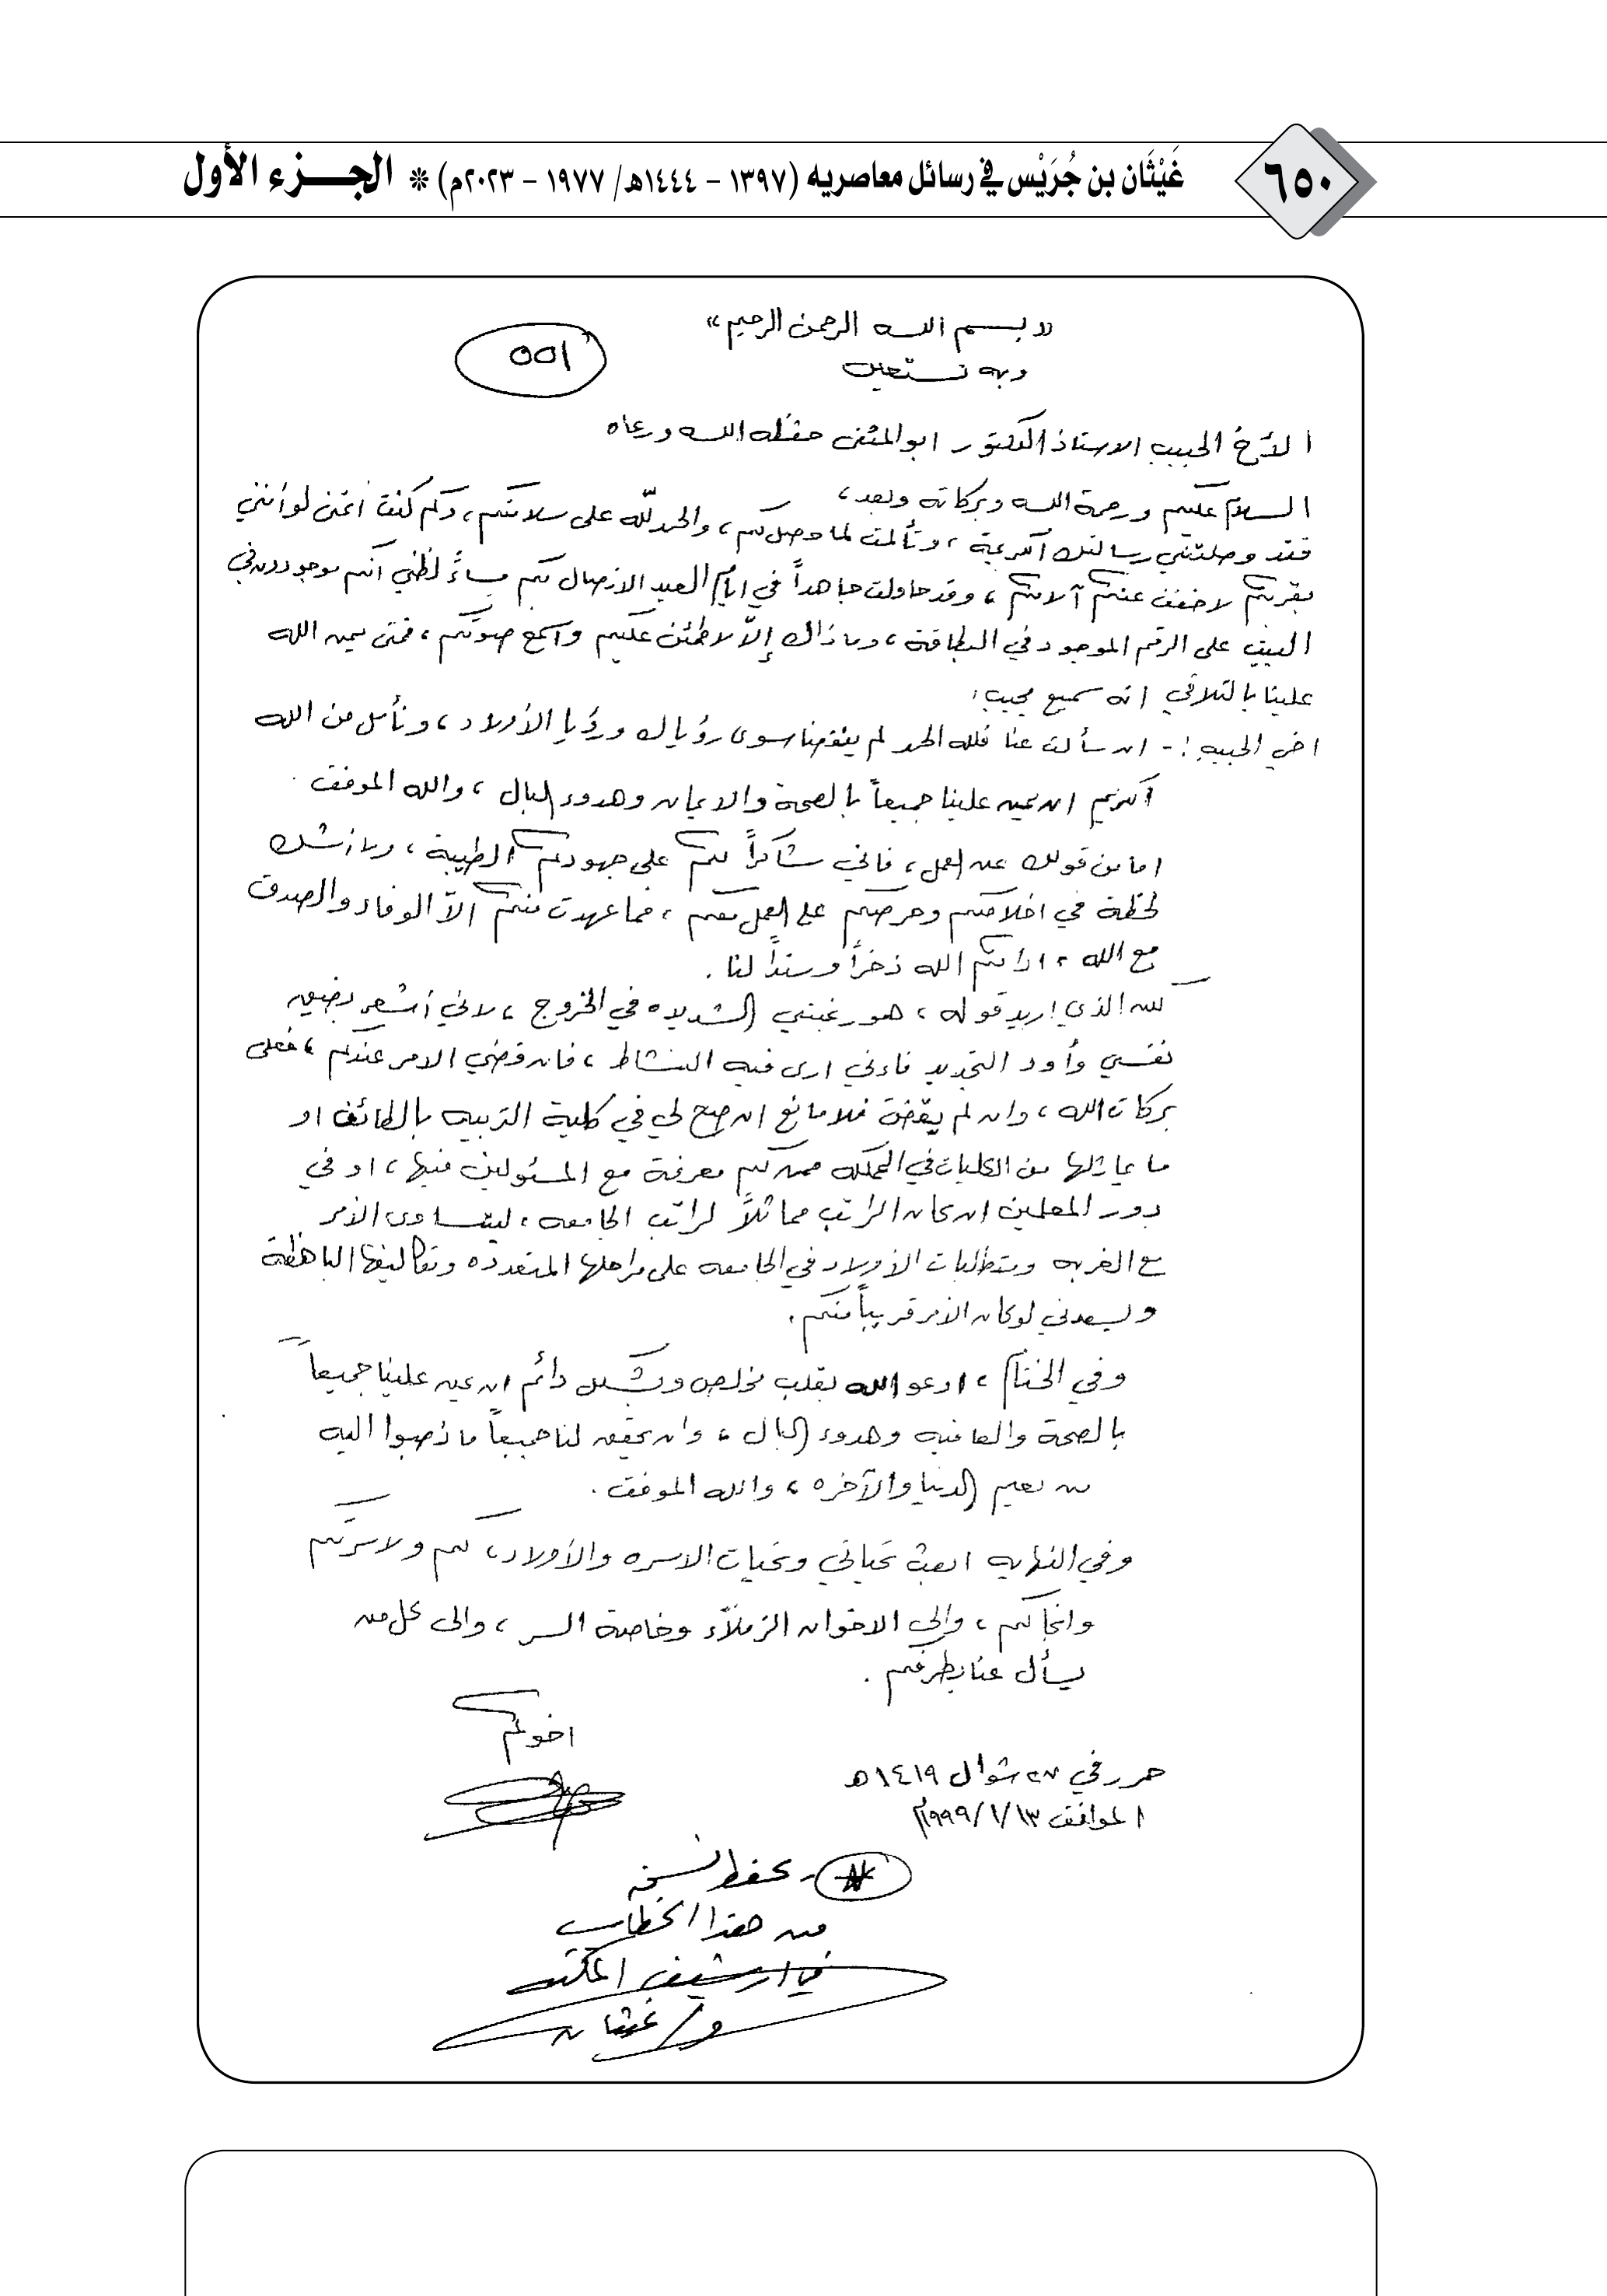 ٦٥٠
غَيْثَان بن جُرَيْس في رسائل معاصريه (١٣٩٧ - ١٤٤٤هـ/ ١٩٧٧ - ٢٠٢٣م) * الجزء الأول
« بسم الله الرحمن الرحيم »
٥٥١
وبه نستعين
الأخ الحبيب الاستاذ الدكتور ابو المثنى حفظه الله ورعاه
السلام عليكم ورحمة الله وبركاته وبعد،
فقد وصلتني رسالتك الكريمة، وتألمت لما وصل لكم، والحمد لله على سلامتكم، وكم كنت اتمنى لو أنني
بقربكم لاخفف عنكم آلامكم، وقد حاولت جاهداً في ايام العيد الاتصال بكم مساءً لظني انكم موجودون في
البيت على الرقم الموجود في البطاقة، وما ذاك إلاّ لاطمئن عليكم واسمع صوتكم، فمتى يمن الله
علينا بالتلاقي انه سميع مجيب:
اخي الحبيب:- ان سألت عنا فلله الحمد لم ينقصنا سوى رؤياك ورؤيا الأولاد، ونأمل من الله
الكريم ان يمن علينا جميعاً بالصحة والايمان وهدوء البال، والله الموفق.
اما من قولك عن العمل، فاني شاكراً لكم على جهودكم الطيبة، ولا أشك
لحظة في اخلاصكم وحرصكم على العمل معكم، فما عهدت منكم الاّ الوفاء والصدق
مع الله، ادامكم الله ذخراً وسنداً لنا.
لكن الذي اريد قوله، هو رغبتي الشديده في الخروج، لاني أشعر بضيق
نفسي وأود التجديد فإني ارى فيه النشاط، فان قضي الامر عندكم، فعلى
بركات الله، وان لم يقض فلا مانع ان صح لي في كلية التربيه بالطائف او
ما يماثلها من الكليات في المملكه ممن لكم معرفة مع المسئولين فيها، او في
دور المعلمين ان كان الراتب مماثلاً لراتب الجامعه، ليتساوى الأمر
مع الغربه ومتطلبات الأولاد في الجامعه على مراحلها المتعدده وتكاليفها الباهظة
ويسعدني لو كان الأمر قريباً منكم.
وفي الختام، ادعو الله بقلب مخلص وبشكل دائم ان يمن علينا جميعاً
بالصحة والعافيه وهدوء البال، وان يحقق لنا جميعاً ما نصبوا اليه
من نعيم الدنيا والآخره، والله الموفق.
وفي النهايه ابعث تحياتي وتحيات الاسره والأولاد، لكم ولاسرتكم
وانجالكم، وإلى الاخوان الزملاء وخاصة السر، والى كل من
يسأل عنا بطرفكم.
اخوكم
حرر في ٢٧ شوال ١٤١٩هـ
الموافق ١٣/١/١٩٩٩م
- تحفظ النسخه
من هذا الخطاب
في ارشيف المكتب
د/ غيثان